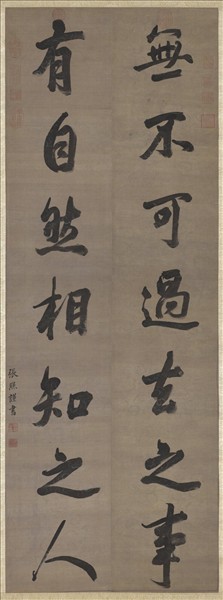 無不可過去之事
有自然相知之人
張照書